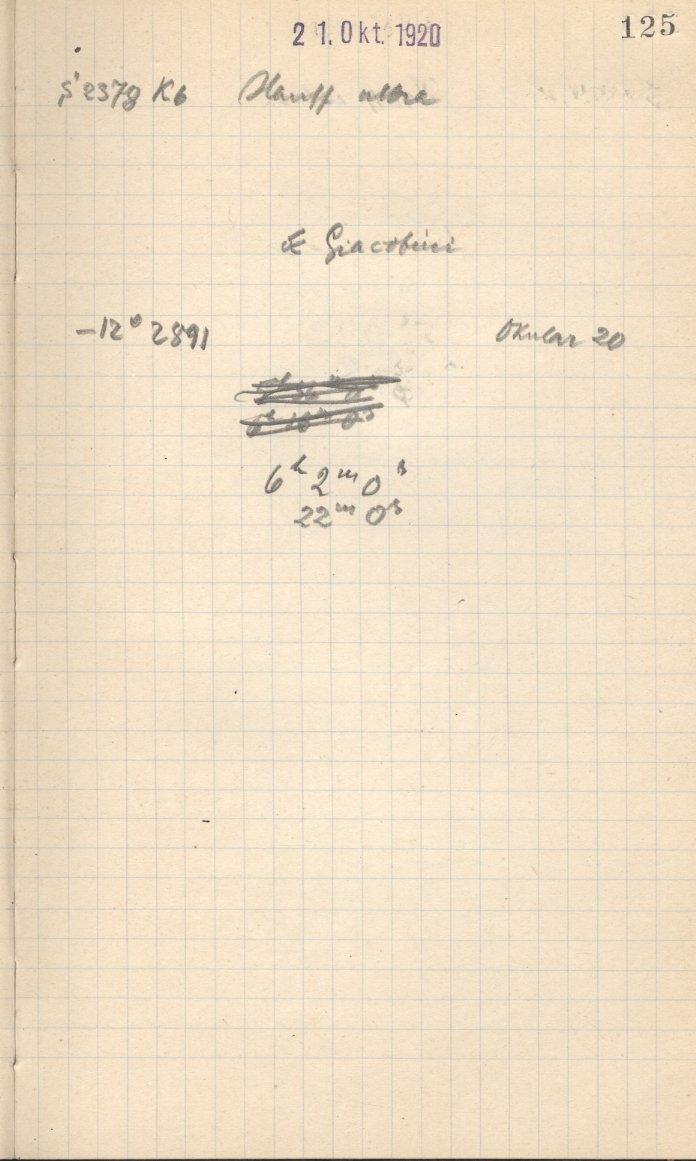 125
21. Okt. 1920
S 2378 Kb Hauff ultra
Giacobini
-12° 2891 Okular 20
6h 2m 0s
22m 0s